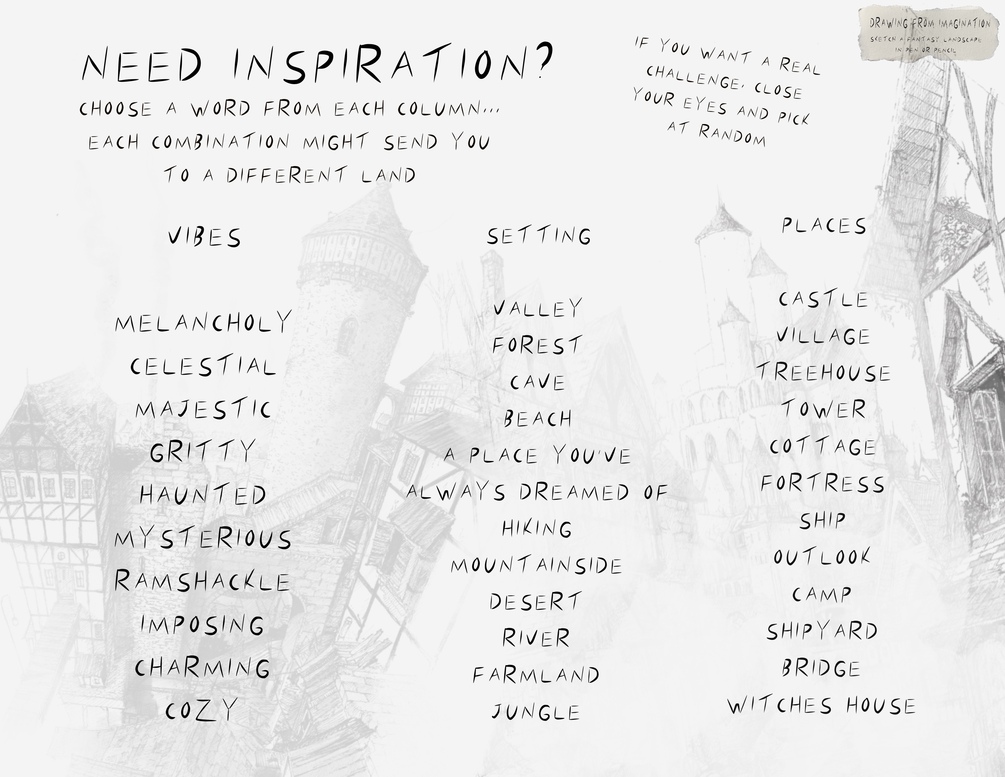 DRAWING FROM IMAGINATION
SKETCH A FANTASY LANDSCAPE
IN PEN OR PENCIL
NEED INSPIRATION?
CHOOSE A WORD FROM EACH COLUMN...
EACH COMBINATION MIGHT SEND YOU
TO A DIFFERENT LAND
IF YOU WANT A REAL
CHALLENGE, CLOSE
YOUR EYES AND PICK
AT RANDOM
VIBES
MELANCHOLY
CELESTIAL
MAJESTIC
GRITTY
HAUNTED
MYSTERIOUS
RAMSHACKLE
IMPOSING
CHARMING
COZY
SETTING
VALLEY
FOREST
CAVE
BEACH
A PLACE YOU'VE
ALWAYS DREAMED OF
HIKING
MOUNTAINSIDE
DESERT
RIVER
FARMLAND
JUNGLE
PLACES
CASTLE
VILLAGE
TREEHOUSE
TOWER
COTTAGE
FORTRESS
SHIP
OUTLOOK
CAMP
SHIPYARD
BRIDGE
WITCHES HOUSE